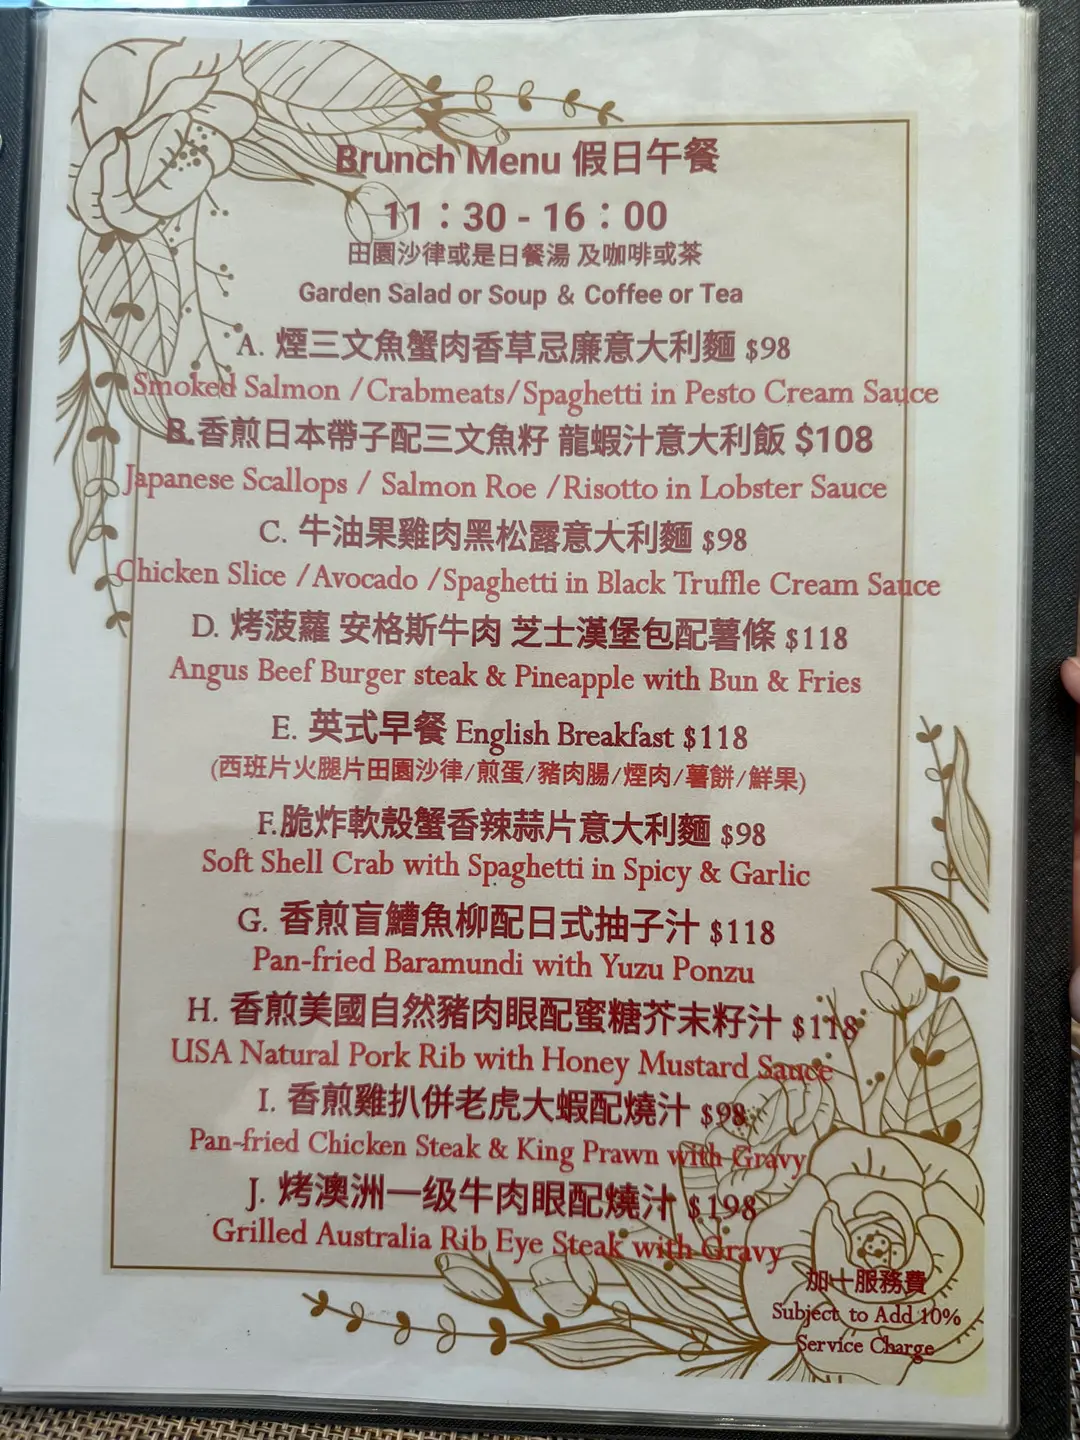 Brunch Menu 假日午餐
11：30 - 16：00
田園沙律或是日餐湯 及咖啡或茶
Garden Salad or Soup & Coffee or Tea
A. 煙三文魚蟹肉香草忌廉意大利麵 $98
Smoked Salmon /Crabmeats/Spaghetti in Pesto Cream Sauce
B.香煎日本帶子配三文魚籽 龍蝦汁意大利飯 $108
Japanese Scallops / Salmon Roe /Risotto in Lobster Sauce
C. 牛油果雞肉黑松露意大利麵 $98
Chicken Slice /Avocado /Spaghetti in Black Truffle Cream Sauce
D. 烤菠蘿 安格斯牛肉 芝士漢堡包配薯條 $118
Angus Beef Burger steak & Pineapple with Bun & Fries
E. 英式早餐 English Breakfast $118
(西班片火腿片田園沙律/煎蛋/豬肉腸/煙肉/薯餅/鮮果)
F.脆炸軟殼蟹香辣蒜片意大利麵 $98
Soft Shell Crab with Spaghetti in Spicy & Garlic
G. 香煎盲鰽魚柳配日式抽子汁 $118
Pan-fried Baramundi with Yuzu Ponzu
H. 香煎美國自然豬肉眼配蜜糖芥末籽汁 $118
USA Natural Pork Rib with Honey Mustard Sauce
I. 香煎雞扒併老虎大蝦配燒汁 $98
Pan-fried Chicken Steak & King Prawn with Gravy
J. 烤澳洲一级牛肉眼配燒汁 $198
Grilled Australia Rib Eye Steak with Gravy
加十服務費
Subject to Add 10%
Service Charge